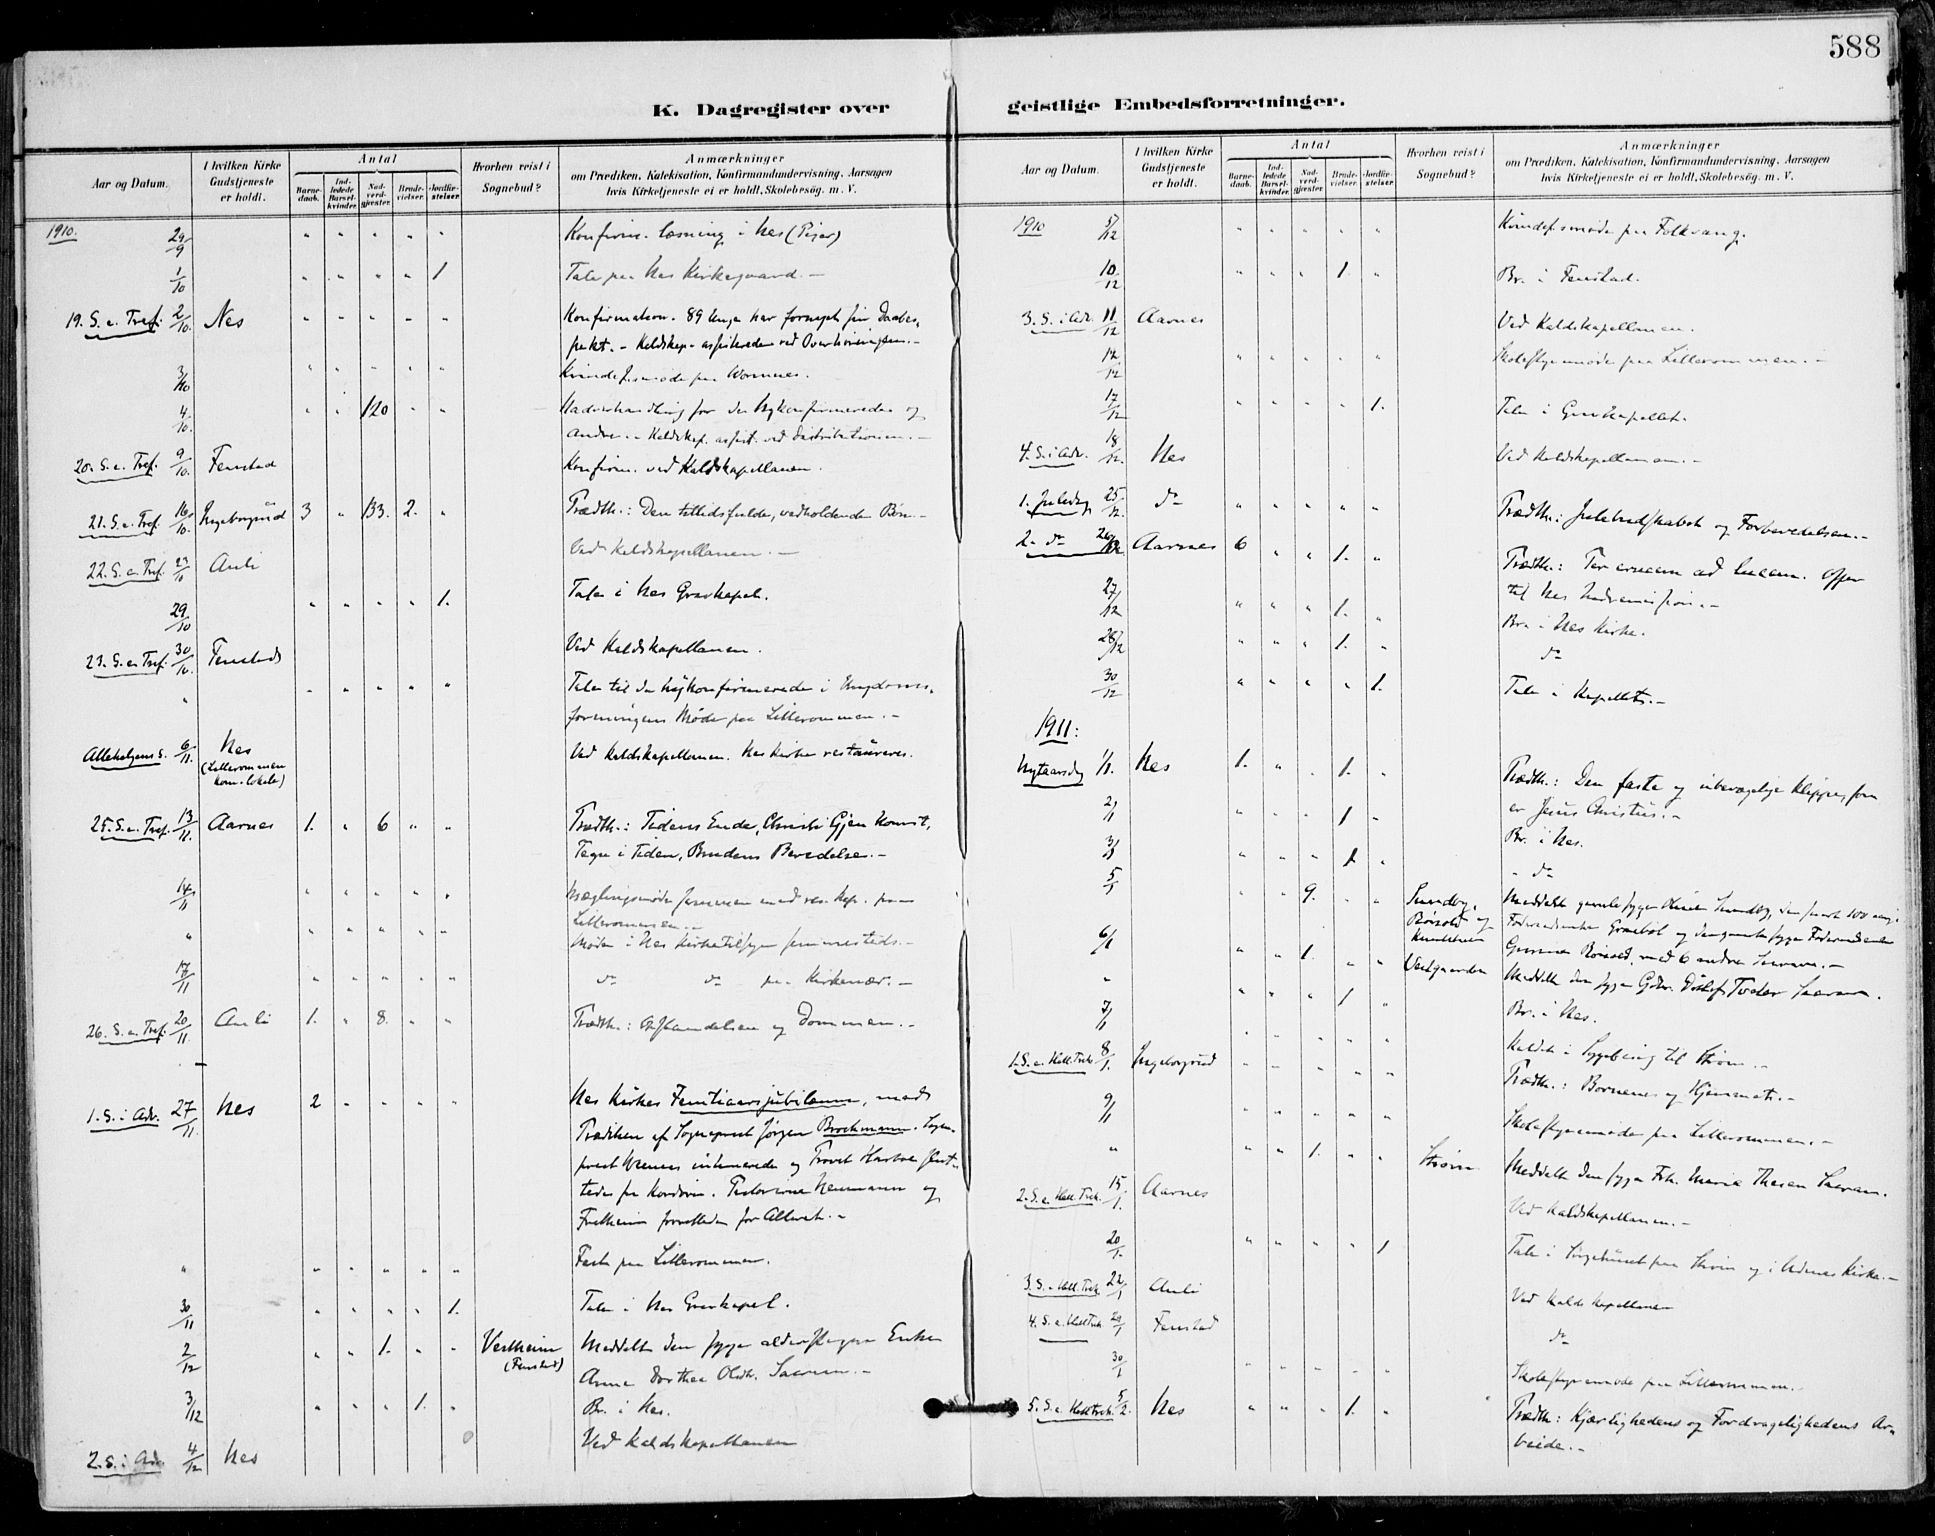 588
K. Dagregister over geistlige Embedsforretninger.
Aar og Datum.
I hvilken Kirke Gudstjeneste er holdt.
Antal
Barnedaab.
Indledede Barselkvinder.
Nadverdgjester.
Brudevielser.
Jordfæstelser.
Hvorhen reist i Sognebud?
Anmærkninger
om Prædiken, Katekisation, Konfirmandundervisning, Aarsagen
hvis Kirketjeneste ei er holdt, Skolebesøg. m. V.
1910. 29/9 " " " " " Konfirm. læsning i Nes (Piger)
1/10 " " " " 1 Tale paa Nes Kirkegaard. -
19. S. e. Tref. 2/10. Nes " " " " " Konfirmation. 89 Unge har fornyet sin Daabs-
pakt. - Kaldskap. assisterede ved Overhøringen. -
3/10 " " " " " Kvindefsmøde paa Wormnes.
4/10. " " 120 " " Nadverhandling for de Nykonfirmerede og
andre. - Kaldskap. assist. ved Distributionen. -
20. S. e. Tref. 9/10. Fenstad Konfirm. ved Kaldskapellanen.
21. S. e. Tref. 16/10. Ingeborgrud 3 " 133. 2. " Prædth.: Den tillidsfulde, vedholdende Bøn. -
22. S. e. Tref. 23/10 Auli Ved Kaldskapellanen. -
29/10 " " " " 1. Tale i Nes Gravkapel.
23. S. e. Tref. 30/10. Fenstad Ved Kaldskapellanen.
" " " " " " Tale til de Nykonfirmerede i Ungdoms-
foreningens Møde paa Lillerommen. -
Allehelgens s. 6/11. Nes Ved Kaldskapellanen. Nes Kirke restaureres.
(Lillerommen
kom. lokale)
25. S. e. Tref. 13/11. Aarnes 1. " 6 " " Prædth.: Tidens Ende, Christi Gjenkomst,
Tegn i Tiden, Brudens Beredelse. -
14/11 " " " " " Mæglingsmøde sammen med res. kap. paa
Lillerommen. -
" " " " " " Møde i Nes Kirketilsyn sammesteds. -
17/11 " " " " " do do paa Kirkenær. -
26. S. e. Tref. 20/11 Auli 1. " 8. " " Prædth.: Opstandelsen og Dommen. -
1. S. i Adv. 27/11. Nes 2 " " " " Nes Kirkes Femtiaarsjubilæum, med
Prædiken af Sogneprest Jørgen Brochmann. Sogne-
prest intonerede og Provst sluttede
fra Kordøren. Pastorerne Neumann og
Fretheim forrettede for Alteret. -
" " " " " " Fest paa Lillerommen.
30/11 " " " " 1. Tale i Nes Gravkapel.
2/12 " " 1. " " Vestheim Meddelt den syge alderstegne Enke
(Fenstad) Anne Dorthea Olsdt. Sacram. -
3/12 " " " 1. " Br. i Nes.
2. S. i Adv. 4/12 Nes Ved Kaldskapellanen
Aar og Datum.
I hvilken Kirke Gudstjeneste er holdt.
Antal
Barnedaab.
Indledede Barselkvinder.
Nadverdgjester.
Brudevielser.
Jordfæstelser.
Hvorhen reist i Sognebud?
Anmærkninger
om Prædiken, Katekisation, Konfirmandundervisning, Aarsagen
hvis Kirketjeneste ei er holdt, Skolebesøg. m. V.
1910 5/12 " " " " " Kvindefsmøde paa Folkvang.
10/12 " " " 1. " Br. i Fenstad.
3. S. i Adv. 11/12 Aarnes Ved Kaldskapellanen.
14/12 " " " " " Skolestyremøde paa Lillerommen. -
17/12 " " " " 1. Tale i Gravkapellet.
4. S. i Adv. 18/12. Nes Ved Kaldskapellanen. -
1. Juledag 25/12. do " " " " " Prædth.: Julebudskabet og Forberedelsen. -
2. do 26/12 Aarnes 6 " " 1. " Prædth.: Per crucem ad lucem. Offer
til Nes Indremission. -
27/12 " " " 1. " Br. i Nes Kirke.
28/12 " " " 1. " do
30/12 " " " " 1. Tale i Kapellet. -
1911:
Nytaarsdag 1/1. Nes 1. " " 1. " Prædth.: Den faste og ubevægelige Klippe, som
er Jesus Christus. -
2/1 " " " 1 " Br. i Nes.
3/1 " " " 1 " " do
5/1 " " 9. " " Sundby, Meddelt gamle syge Sundby,
Føderaadsenke og den gamle syge Føderaadsenke
med 6 andre Sacram. -
6/1 " " 1. " " Vestgaarden Meddelt den syge Sacram.
" " " " 1 " Br. i Nes.
7/1 " " " " " Kaldt i Sygebesøg til Strøm. -
1. S. e. Hell. Trek. 8/1. Ingeborgrud " " " " " Prædth.: Børnene og Hjemmet. -
9/1 " " " " " Skolestyremøde paa Lillerommen. -
" " " 1. " " Strøm Meddelt den syge Frk. Marie Sacram.
2. S. e. Hell. Trek. 15/1. Aarnes Ved Kaldskapellanen. -
20/1. " " " " 1 Tale i Sørgehuset paa Strøm og i Udenes Kirke. -
3. S. e. Hell. Trek. 22/1 Auli Ved Kaldskapellanen
4. S. e. Hell. Trek. 29/1 Fenstad do
30/1 " " " " " Skolestyremøde paa Lillerommen. -
5. S. e. Hell. Trek. 5/2. Nes " " " 1. " Prædth.: Kjærlighedens og Fordragelighedens Ar-
beide. -